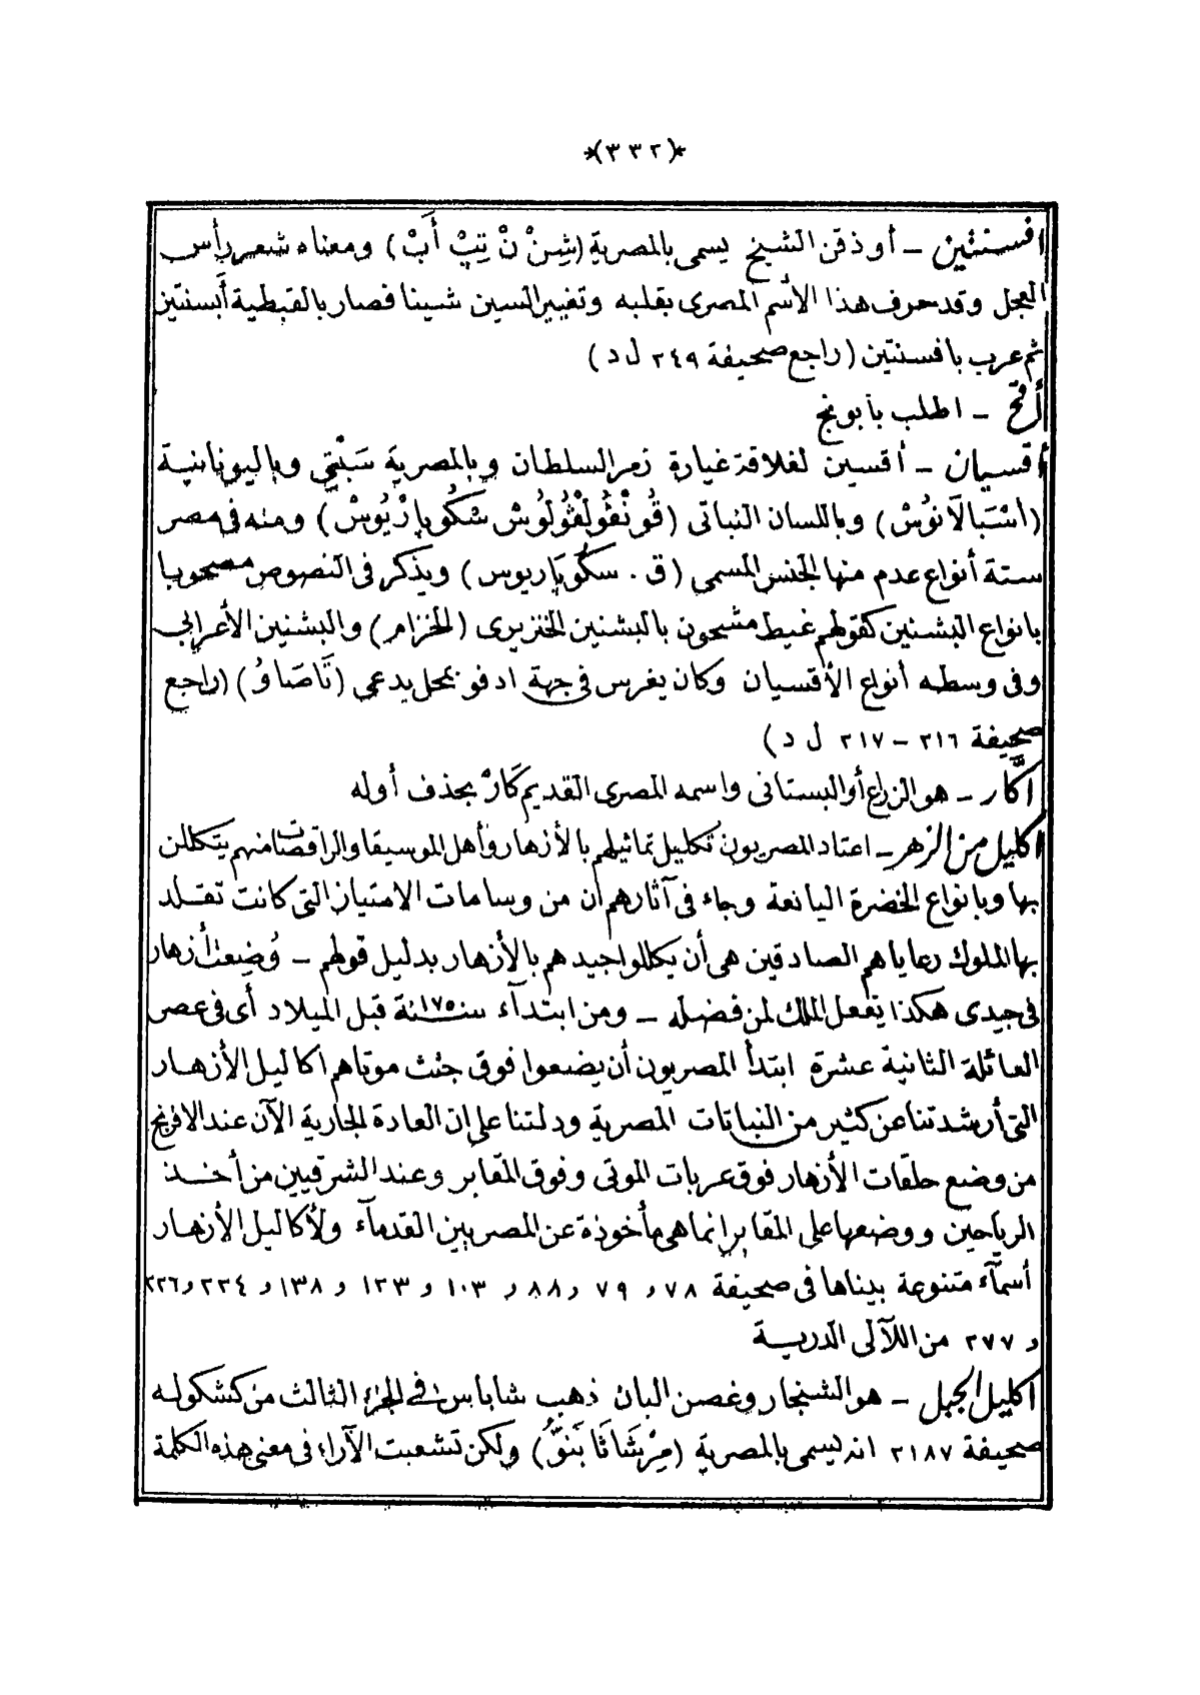 *(٣٣٢)*
افسنتين – أو ذقن الشيخ يسمى بالمصرية (شِنْ نْ تِبْ أَبْ) ومعناه شعر رأس
العجل وقد حرف هذا الأسم المصرى بقلبه وتغيير السين شينا فصار بالقبطية أَبسنتين
ثم عرب بافسنتين (راجع صحيفة ٢٤٩ ل د)
أقح – اطلب بابونج
أقسيان – أقسين لغلاقة غيارة زمر السلطان وبالمصرية سَبْتِى وباليونانية
(اسْبَالَانوُسْ) وباللسان النباتى (قُونْڤُولْڤُولُوسْ سْكُوپارْيُوسْ) ومنه فى مصر
ستة أنواع عدم منها الجنس المسمى (ق . سكوپاريوس) ويذكر فى النصوص مصحوبا
بانواع البشنين كقولهم غيط مشحون بالبشنين الخنزيرى (الخزام) والبشنين الأعرابى
وفى وسطه أنواع الأقسيان وكان يغرس فى جهة ادفو بمحل يدعى (تَاصَاوُ) (راجع
صحيفة ٢١٦ – ٢١٧ ل د)
اكَّار – هو الزراع أو البستانى واسمه المصرى القديم كَارْ بحذف أوله
اكليل من الزهر – اعتاد المصريون تكليل تماثيلهم بالأزهار وأهل الموسيقا والراقصات منهم يتكللن
بها وبانواع الخضرة اليانعة وجاء فى آثارهم أن من وسامات الامتياز التى كانت تقلد
بها الملوك رعاياهم الصادقين هى أن يكللوا جيدهم بالأزهار بدليل قولهم – وُضِعت أزهار
فى جيدى هكذا يفعل الملك لمن فضله – ومن ابتدآء سنة ١٧٥٠ قبل الميلاد أى فى عصر
العائلة الثانية عشرة ابتدأ المصريون أن يضعوا فوق جثث موتاهم اكاليل الأزهار
التى أرشدتنا عن كثير من النباتات المصرية ودلتنا على ان العادة الجارية الآن عند الافرنج
من وضع حلقات الأزهار فوق عربات الموتى وفوق المقابر وعند الشرقيين من أخذ
الرياحين ووضعها على المقابر انما هى مأخوذة عن المصريين القدمآء ولأكاليل الأزهار
أسمآء متنوعة بيناها فى صحيفة ٧٨ و ٧٩ و ٨٨ و ١٠٣ و ١٢٣ و ١٣٨ و ٢٢٤ و ٢٢٦
و ٢٧٧ من اللآلى الدرية
اكليل الجبل – هو الشنجار وغصن البان ذهب شاباس فى الجزء الثالث من كشكوله
صحيفة ٢١٨٧ انه يسمى بالمصرية (مِرْشَاثَا بَنوُّ) ولكن تشعبت الآراء فى معنى هذه الكلمة